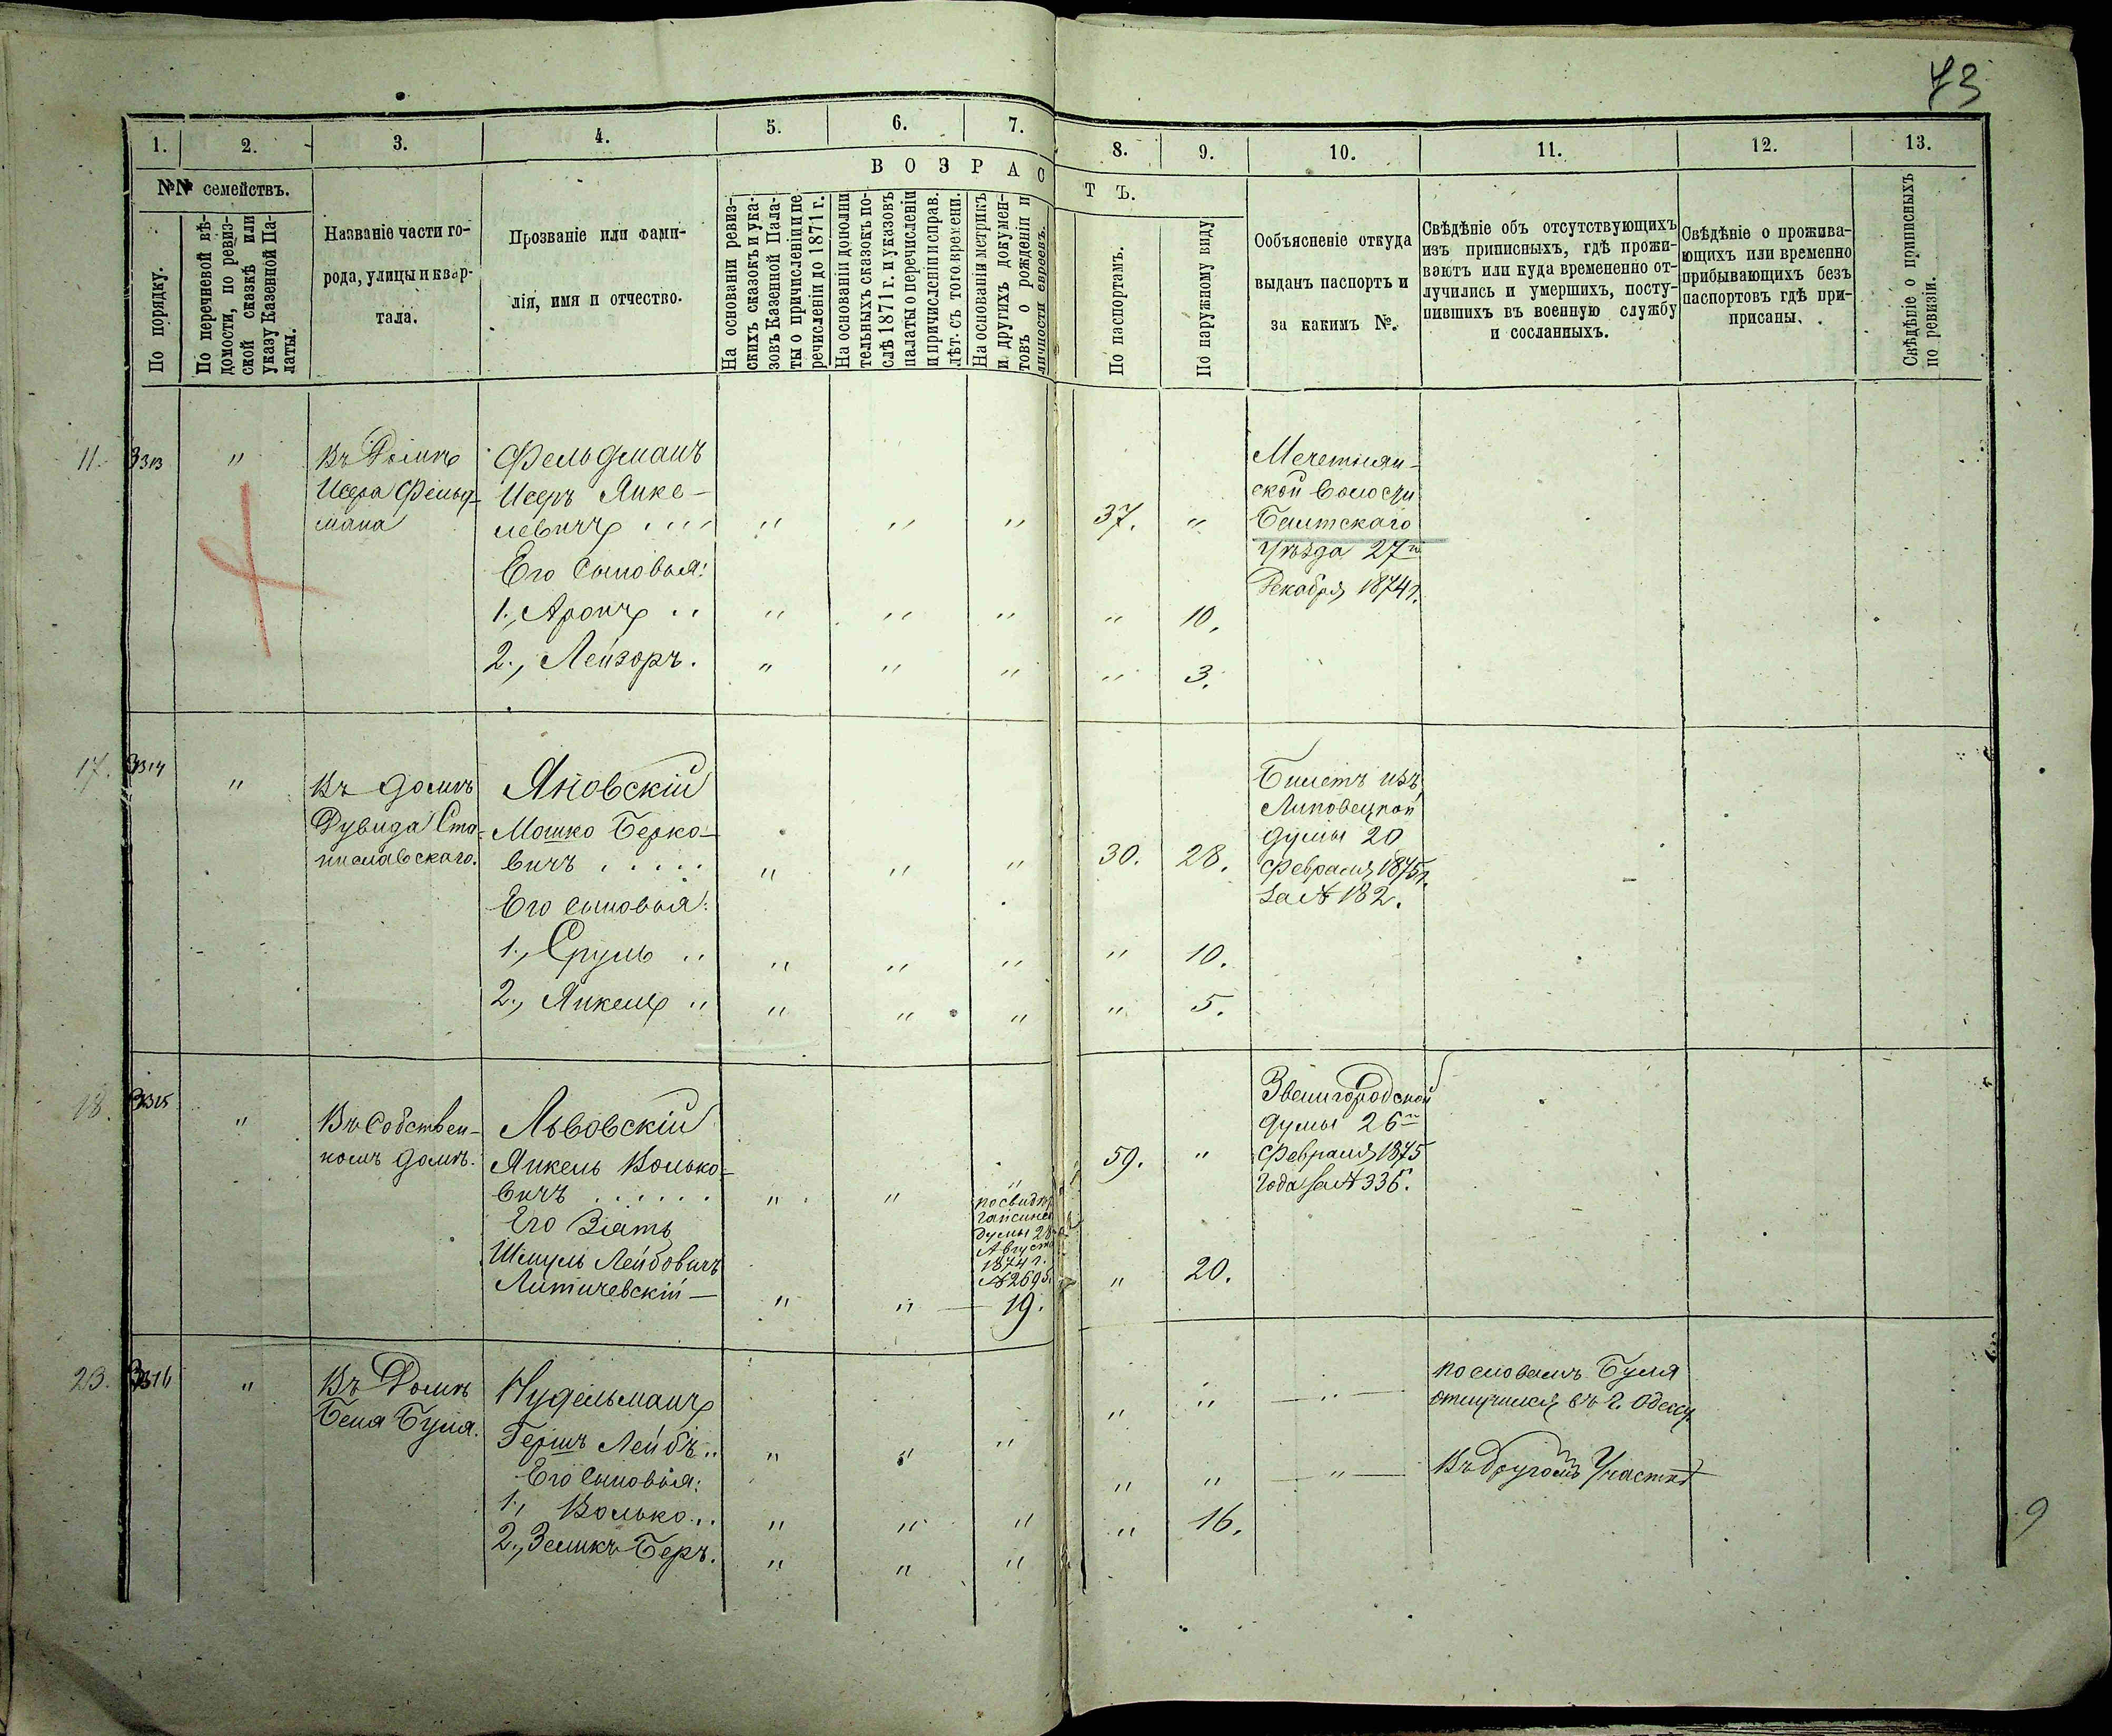 73
1.
2.
3.
4.
5.
6.
7.
8.
9.
10.
11.
12.
13.
№№ семействъ.
ВОЗРАСТЪ.
По порядку.
По перечневой вѣ-
домости, по ревиз-
ской сказкѣ или
указу Казенной Па-
латы.
Названіе части го-
рода, улицы и квар-
тала.
Прозваніе или фами-
лія, имя и отчество.
На основаніи ревиз-
скихъ сказокъ и ука-
зовъ Казенной Пала-
ты о причисленіи и пе
речисленіи до 1871 г.
На основаніи дополни
тельныхъ сказокъ по-
слѣ 1871 г. и указовъ
палаты о перечисленіи
и причисленіи и справ.
лѣт. съ того времени.
На основаніи метрикъ
и другихъ докумен-
товъ о рожденіи и
личности евреевъ.
По паспортамъ.
По наружному виду
Ообъясненіе откуда
выданъ паспортъ и
за какимъ №.
Свѣдѣніе объ отсутствующихъ
изъ приписныхъ, гдѣ прожи-
ваютъ или куда времененно от-
лучились и умершихъ, посту-
пившихъ въ военную службу
и сосланныхъ.
Свѣдѣніе о прожива-
ющихъ или временно
прибывающихъ безъ
паспортовъ гдѣ при-
писаны.
Свѣдѣніе о приписныхъ
по ревизіи.
11.
3313
"
Въ Домѣ
Исера Фельд-
мана
Фельдманъ
Исеръ Янке-
левичъ
" " "
37.
"
Его сыновья:
1., Аронъ
" " " "
10.
2., Лейзоръ.
" " " "
3.
Мечетнян-
ской волости
Балтскаго
Уѣзда 27го
Декабря 1874 г.
17.
3314
"
Въ домѣ
Дувида Ста-
ниславскаго.
Яновскій
Мошко Берко-
вичъ . . . . .
" " "
30.
28.
Его сыновья:
1., Сруль
" " " "
10.
2., Янкель
" " " "
5.
Билетъ изъ
Липовецкой
думы 20
Февраля 1875 г.
за № 182.
18.
3315
"
Въ собствен-
номъ домѣ.
Львовскій
Янкель Волько-
вичъ . . . . . .
" " "
59.
"
Его Зять
Шмуль Лейбовичъ
Литичевскій —
" "
Думы 28
Августа
1874 г.
№ 2695.
19.
"
20.
Звенигородской
думы 26го
Февраля 1875
года за № 336.
23.
3316
"
Въ Домѣ
Беня Буля.
Нудельманъ
Гершъ Лейбъ
" " " " " "
Его сыновья:
1., Волько
" " " " " "
2., Зеликъ Беръ.
" " " "
16.
по словамъ Буля
отлучился въ г. Одессу
Въ другомъ Участкѣ
9